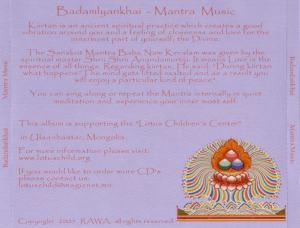 Badamlyankhai - Mantra Music
Kirtan is an ancient spiritual practice which creates a good
vibration around you and a feeling of closeness and love for the
innermost part of yourself, the Divine.
The Sanskrit Mantra Baba Nam Kevalam was given by the
spiritual master Shrii Shrii Anandamurtiji. It means Love is the
essence of all things. Regarding kirtan, He said, "During kirtan
what happens? The mind gets lifted exalted and as a result you
will enjoy a particular kind of peace".
You can sing along or repeat the Mantra internally in quiet
meditation and experience your inner most self.
This album is supporting the "Lotus Children's Center"
in Ulaanbaatar, Mongolia.
For more information please visit:
www.lotuschild.org
If you would like to order more CD's
please contact us:
lotuschild@magicnet.mn
Copyright 2005 RAWA, all rights reserved
Badamlyankhai
Mantra Music
Badamlyankhai
Mantra Music